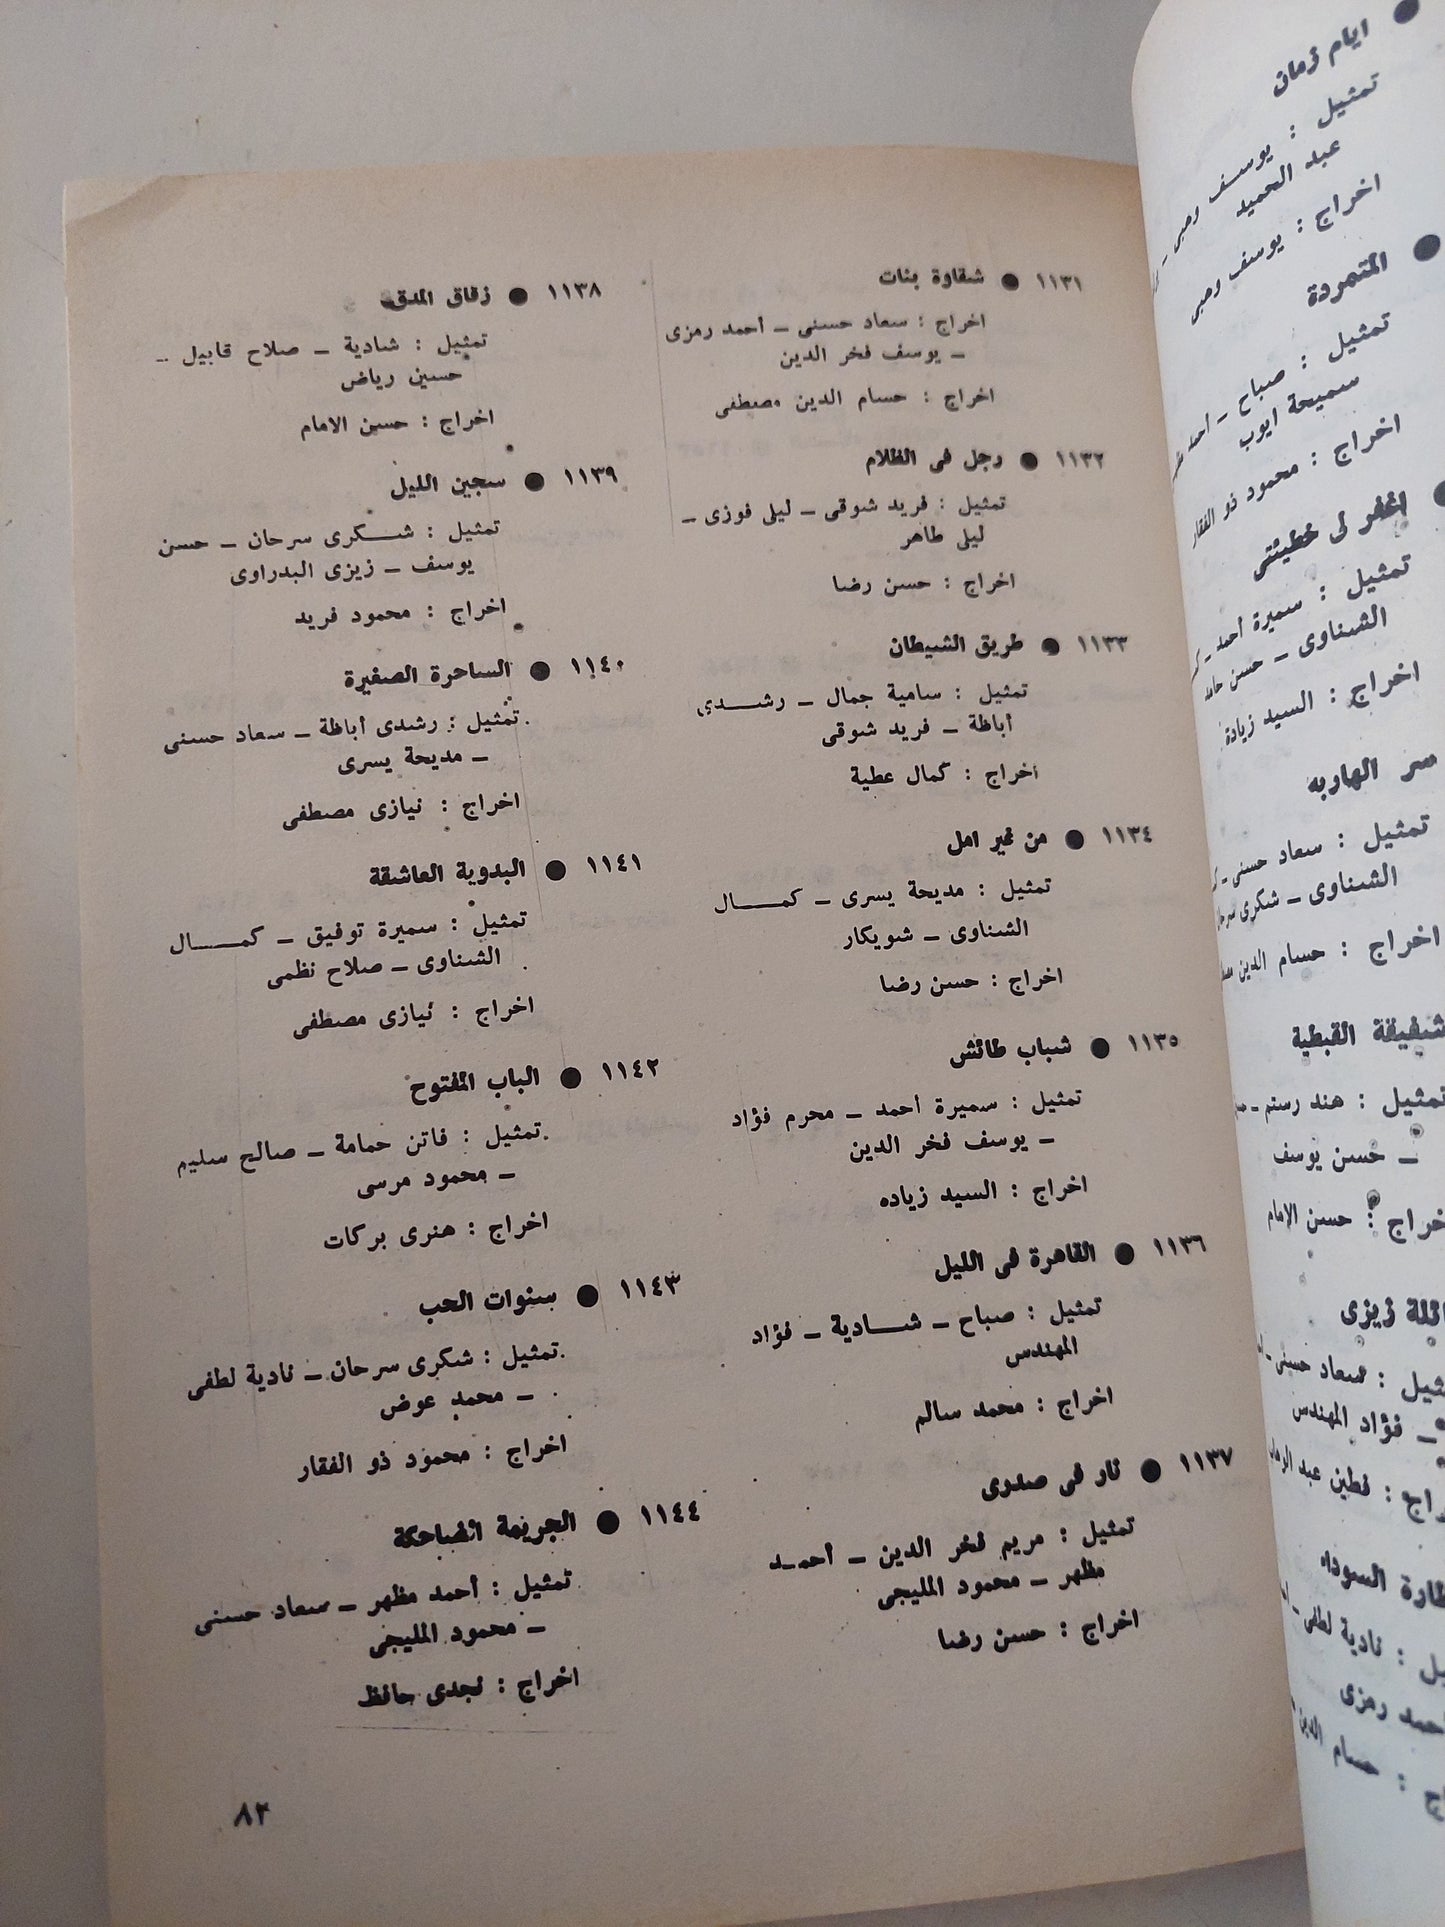 ١١٣١ ● شقاوة بنات
اخراج : سعاد حسنى ـ احمد رمزى
ـ يوسف فخر الدين
اخراج : حسام الدين مصطفى
١١٣٢ ● رجل فى الظلام
تمثيل : فريد شوقى ـ ليلى فوزى ـ
ليلى طاهر
اخراج : حسن رضا
١١٣٣ ● طريق الشيطان
تمثيل : سامية جمال ـ رشدى
أباظة ـ فريد شوقى
اخراج : كمال عطية
١١٣٤ ● من غير امل
تمثيل : مديحة يسرى ـ كمال
الشناوى ـ شويكار
اخراج : حسن رضا
١١٣٥ ● شباب طائش
تمثيل : سميرة أحمد ـ محرم فؤاد
ـ يوسف فخر الدين
اخراج : السيد زياده
١١٣٦ ● القاهرة فى الليل
تمثيل : صباح ـ شادية ـ فؤاد
المهندس
اخراج : محمد سالم
١١٣٧ ● نار فى صدرى
تمثيل : مريم فخر الدين ـ أحمد
مظهر ـ محمود المليجى
اخراج : حسن رضا
١١٣٨ ● زقاق المدق
تمثيل : شادية ـ صلاح قابيل ـ
حسين رياض
اخراج : حسن الامام
١١٣٩ ● سجين الليل
تمثيل : شكرى سرحان ـ حسن
يوسف ـ زيزى البدراوى
اخراج : محمود فريد
١١٤٠ ● الساحرة الصغيرة
تمثيل : رشدى أباظة ـ سعاد حسنى
ـ مديحة يسرى
اخراج : نيازى مصطفى
١١٤١ ● البدوية العاشقة
تمثيل : سميرة توفيق ـ كمال
الشناوى ـ صلاح نظمى
اخراج : نيازى مصطفى
١١٤٢ ● الباب المفتوح
تمثيل : فاتن حمامة ـ صالح سليم
ـ محمود مرسى
اخراج : هنرى بركات
١١٤٣ ● سنوات الحب
تمثيل : شكرى سرحان ـ نادية لطفى
ـ محمد عوض
اخراج : محمود ذو الفقار
١١٤٤ ● الجريمة الضاحكة
تمثيل : أحمد مظهر ـ سعاد حسنى
ـ محمود المليجى
اخراج : نجدى حافظ
٨٢
● ايام زمان
تمثيل : يوسف وهبى ـ
عبد الحميد
اخراج : يوسف وهبى
● المتمردة
تمثيل : صباح ـ احمد
سميحة ايوب
اخراج : محمود ذو الفقار
● اغفر لى خطيئتى
تمثيل : سميرة أحمد ـ
الشناوى ـ حسن حامد
اخراج : السيد زيادة
سر الهاربه
تمثيل : سعاد حسنى ـ
الشناوى ـ شكرى
اخراج : حسام الدين
شفيقة القبطية
تمثيل : هند رستم ـ
ـ حسن يوسف
اخراج : حسن الإمام
زيزى
: سعاد حسنى ـ
ـ فؤاد المهندس
: فطين عبد
السوداء
: نادية لطفى ـ
رمزى
: حسام الدين